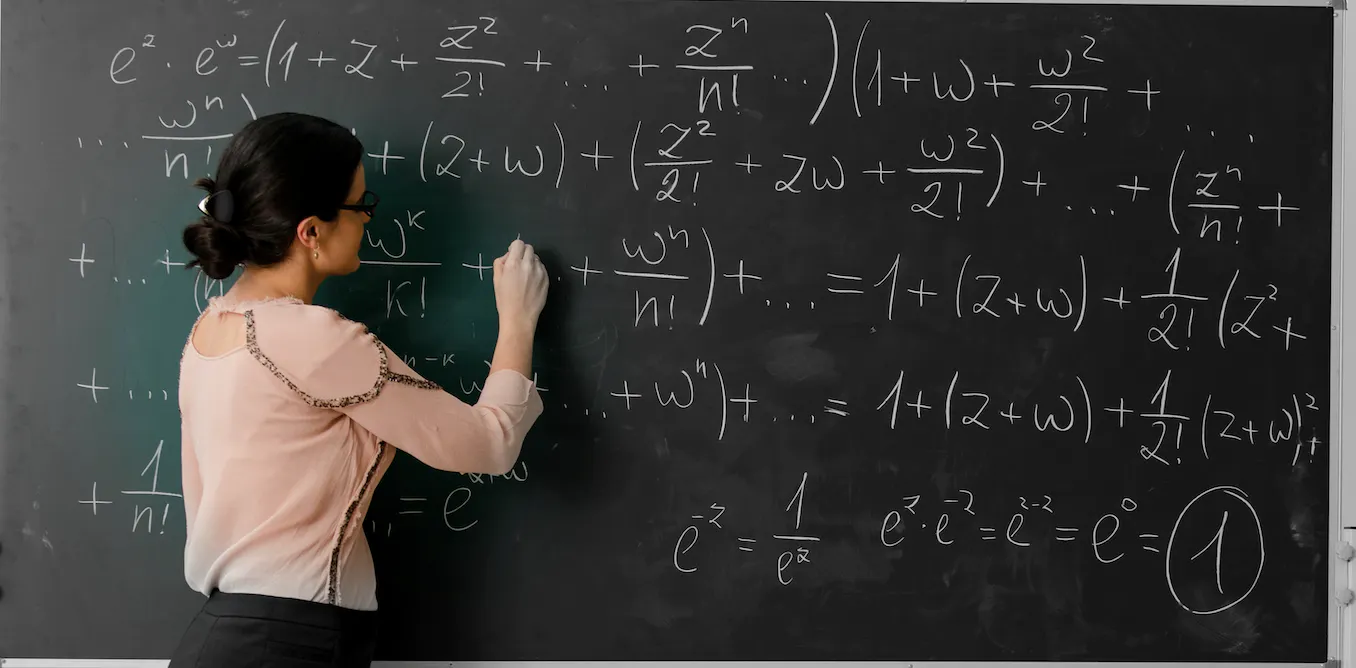 e^z · e^w = (1 + z + z^2/2! + ... + z^n/n! ...) (1 + w + w^2/2! + ...
... w^n/n!) + (z + w) + (z^2/2! + zw + w^2/2!) + ... + (z^n/n! +
+ ... + w^k/k! + ... + w^n/n!) + ... = 1 + (z + w) + 1/2! (z^2 +
+ ... n-k w + ... + w^n) + ... = 1 + (z + w) + 1/2! (z + w)^2 +
+ 1/n! ... = e^z+w
e^-z = 1/e^z e^z · e^-z = e^z-z = e^0 = 1